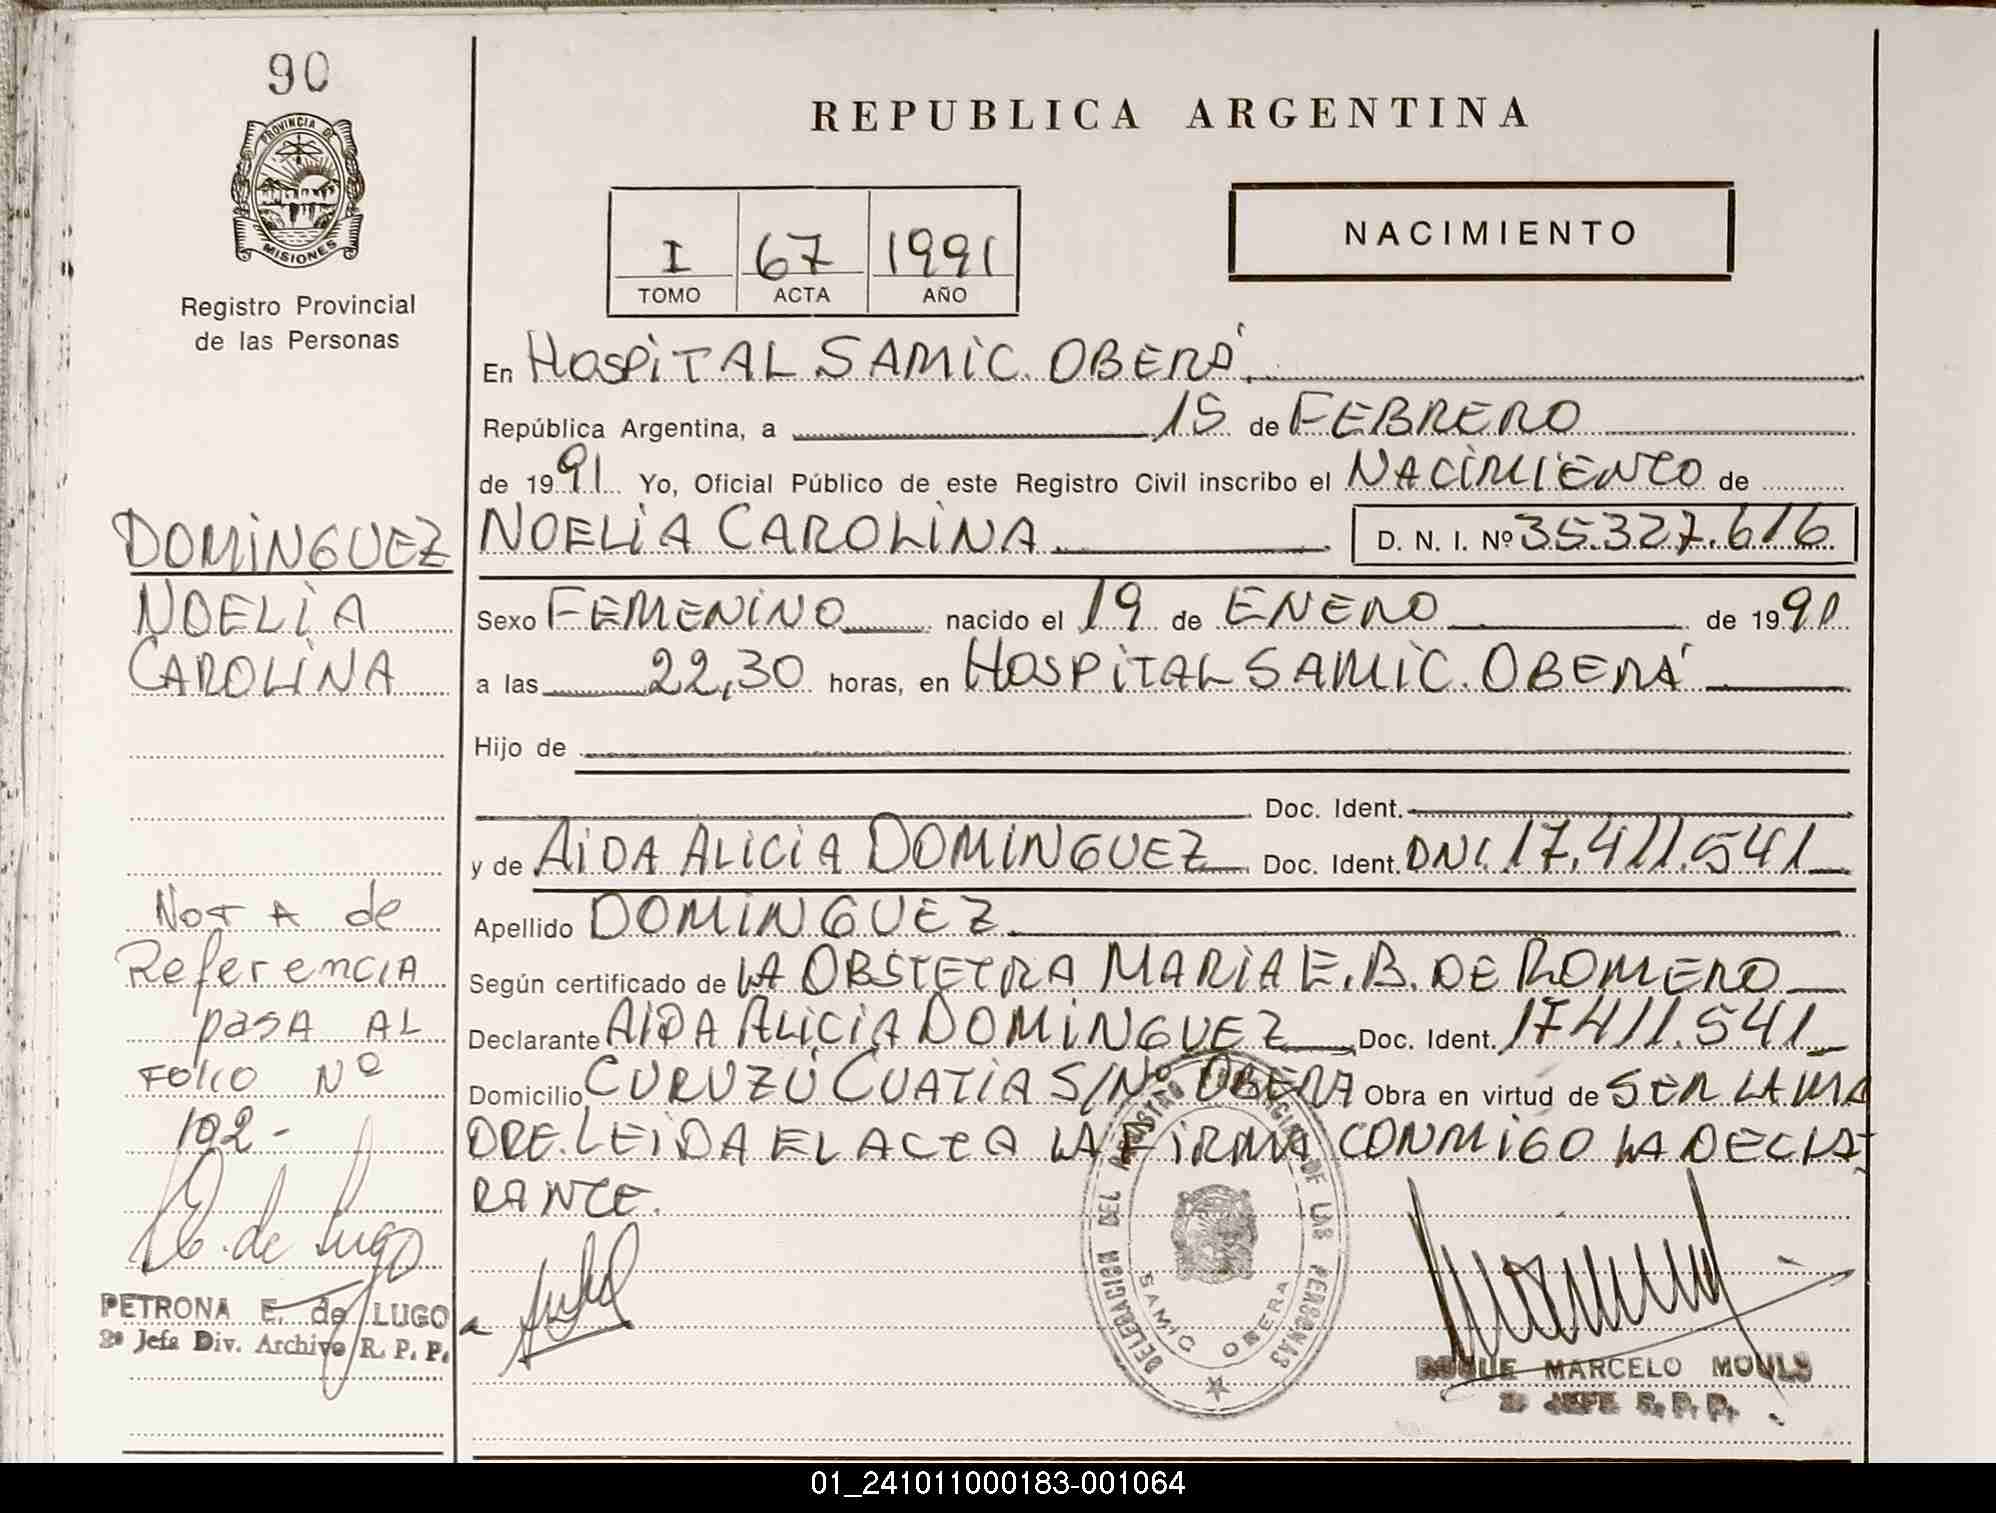 90
PROVINCIA DE
MISIONES
Registro Provincial
de las Personas
DOMINGUEZ
NOELIA
CAROLINA
NOTA de
Referencia
pasa AL
FOLIO Nº
102-
E. de Lugo
PETRONA E. de LUGO
2ª Jefa Div. Archivo R. P. P.
REPUBLICA ARGENTINA
I 67 1991
TOMO ACTA AÑO
NACIMIENTO
En HOSPITAL SAMIC. OBERÁ
República Argentina, a 15 de FEBRERO
de 1991 Yo, Oficial Público de este Registro Civil inscribo el NACIMIENTO de
NOELIA CAROLINA D. N. I. Nº 35.327.616
Sexo FEMENINO nacido el 19 de ENERO de 1991
a las 22,30 horas, en HOSPITAL SAMIC. OBERÁ
Hijo de
Doc. Ident.
y de AIDA ALICIA DOMINGUEZ Doc. Ident. DNI. 17.411.541
Apellido DOMINGUEZ
Según certificado de LA OBSTETRA MARIA E. B. DE ROMERO
Declarante AIDA ALICIA DOMINGUEZ Doc. Ident. 17411.541
Domicilio CURUZÚ CUATIA S/Nº OBERA Obra en virtud de SER LA MA
DRE. LEIDA EL ACTA LA FIRMA CONMIGO LA DECLA-
RANTE.
DELEGACION DEL REGISTRO PROVINCIAL DE LAS PERSONAS
SAMIC OBERA
ROQUE MARCELO MOULS
2º JEFE R. P. P.
01_241011000183-001064